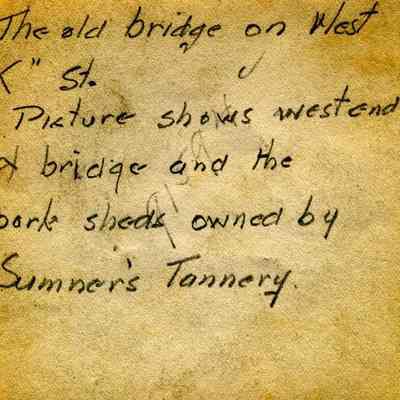 The old bridge on West
K" St.
Picture shows west end
of bridge and the
bark sheds owned by
Sumner's Tannery.